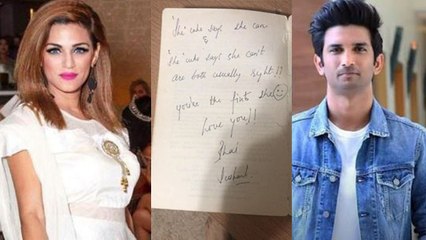 "She" who says she can
&
"She" who says she can't
are both usually right!!
you're the first 'she'
Love you!!
Bhai
Sushant